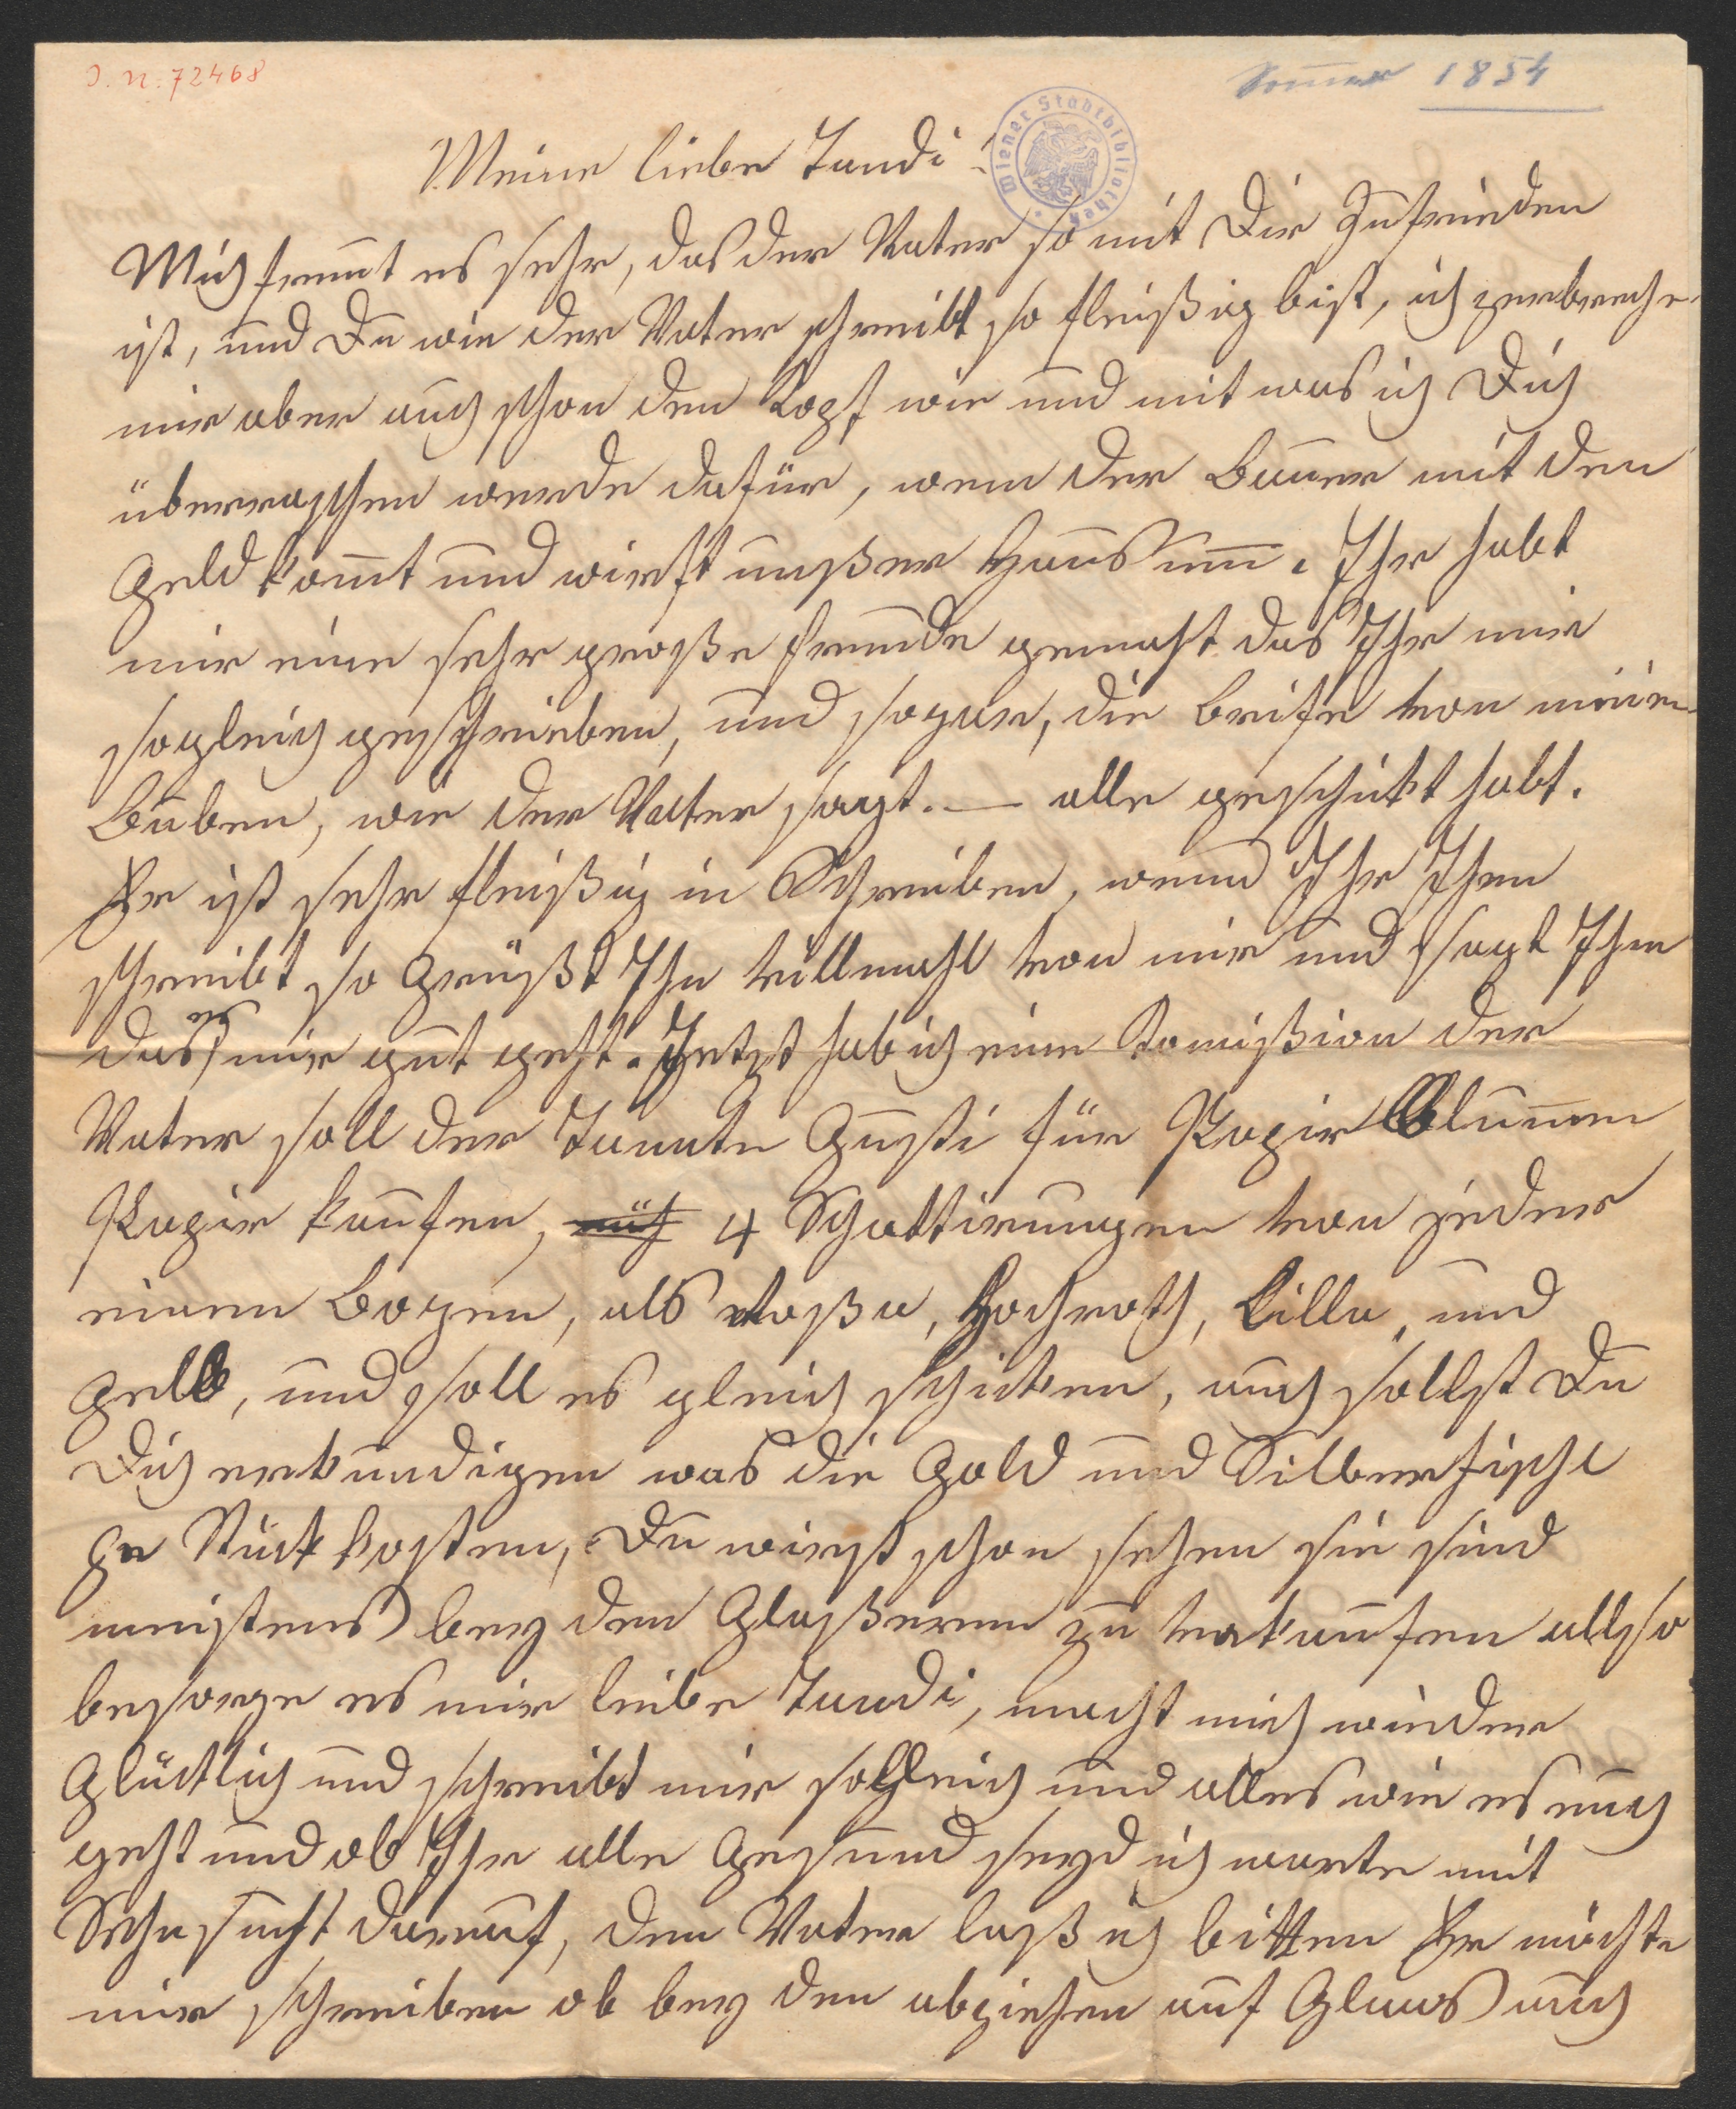 I. N. 72468
Sommer 1854
Wiener Stadtbibliothek
Meine liebe Tandi!
Mich freuut es sehr, das der Vater so mit Dir Zufrieden
ist, und Du wie der Vater schreibt so fleißig bist, ich zerbreche
mir aber auch schon den Kopf wie und mit was ich Dich
überraschen werde dafür, wenn der Bauer mit den
Geld kommt und wirft unßer Haus um. Ihr habt
mir eine sehr große Freude gemacht das Ihr mir
sogleich geschrieben, und sogar, die Briefe von meinen
Buben, wie der Vater sagt. — alle geschikt habt.
Er ist sehr fleißig in Schreiben, wenn Ihr Ihm
schreibt so Grüßt Ihn villmahl von mir und sagt Ihm
das es mir gut geht. Jetzt hab ich eine Comißion der
Vater soll der Tannte Gusti für Papir Blumen
Papir kaufen, 4 Schattirungen von jeder
einen Bogen, als Roßa, Hochroth, Lilla, und
gelb, und soll es gleich schiken, auch sollst Du
Dich erkundigen was die Gold und Silberfische
Stück kosten, Du wirst schon sehen sie sind
meistens bey den Glaßerern zu verkaufen allso
besorge es mir liebe Tandi, macht mich wieder
Glücklich und schreibt mir sogleich und alles wie es euch
geht und ob Ihr alle Gesund seyd ich warte mit
Sehnsucht darauf, den Vater laß ich bitten Er möchte
mir schreiben ob bey den abziehen auf Glaas auch